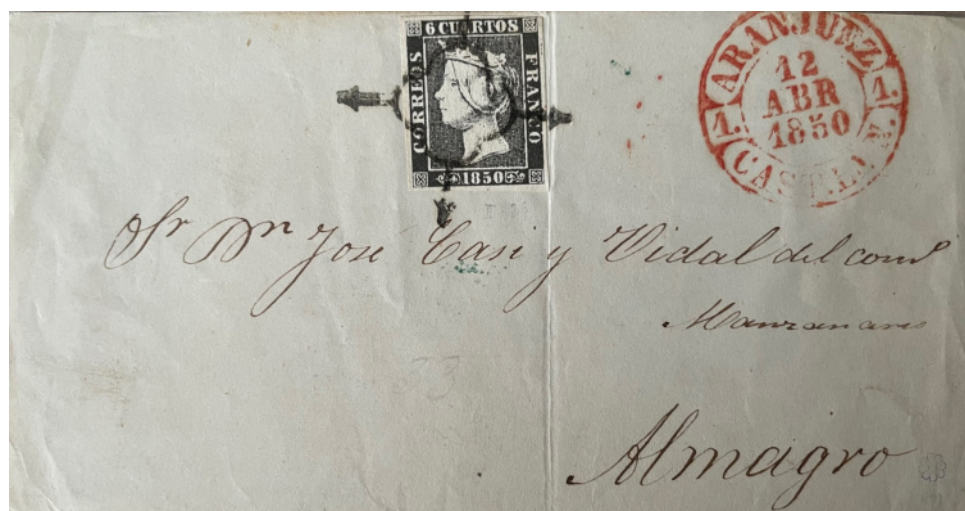 6 CUARTOS
CORREOS
FRANCO
1850
ARANJUEZ
12
ABR
1850
1. 1.
CASTILLA N.
Sr Dn José Casi y Vidal del com
Manzanares
Almagro
33